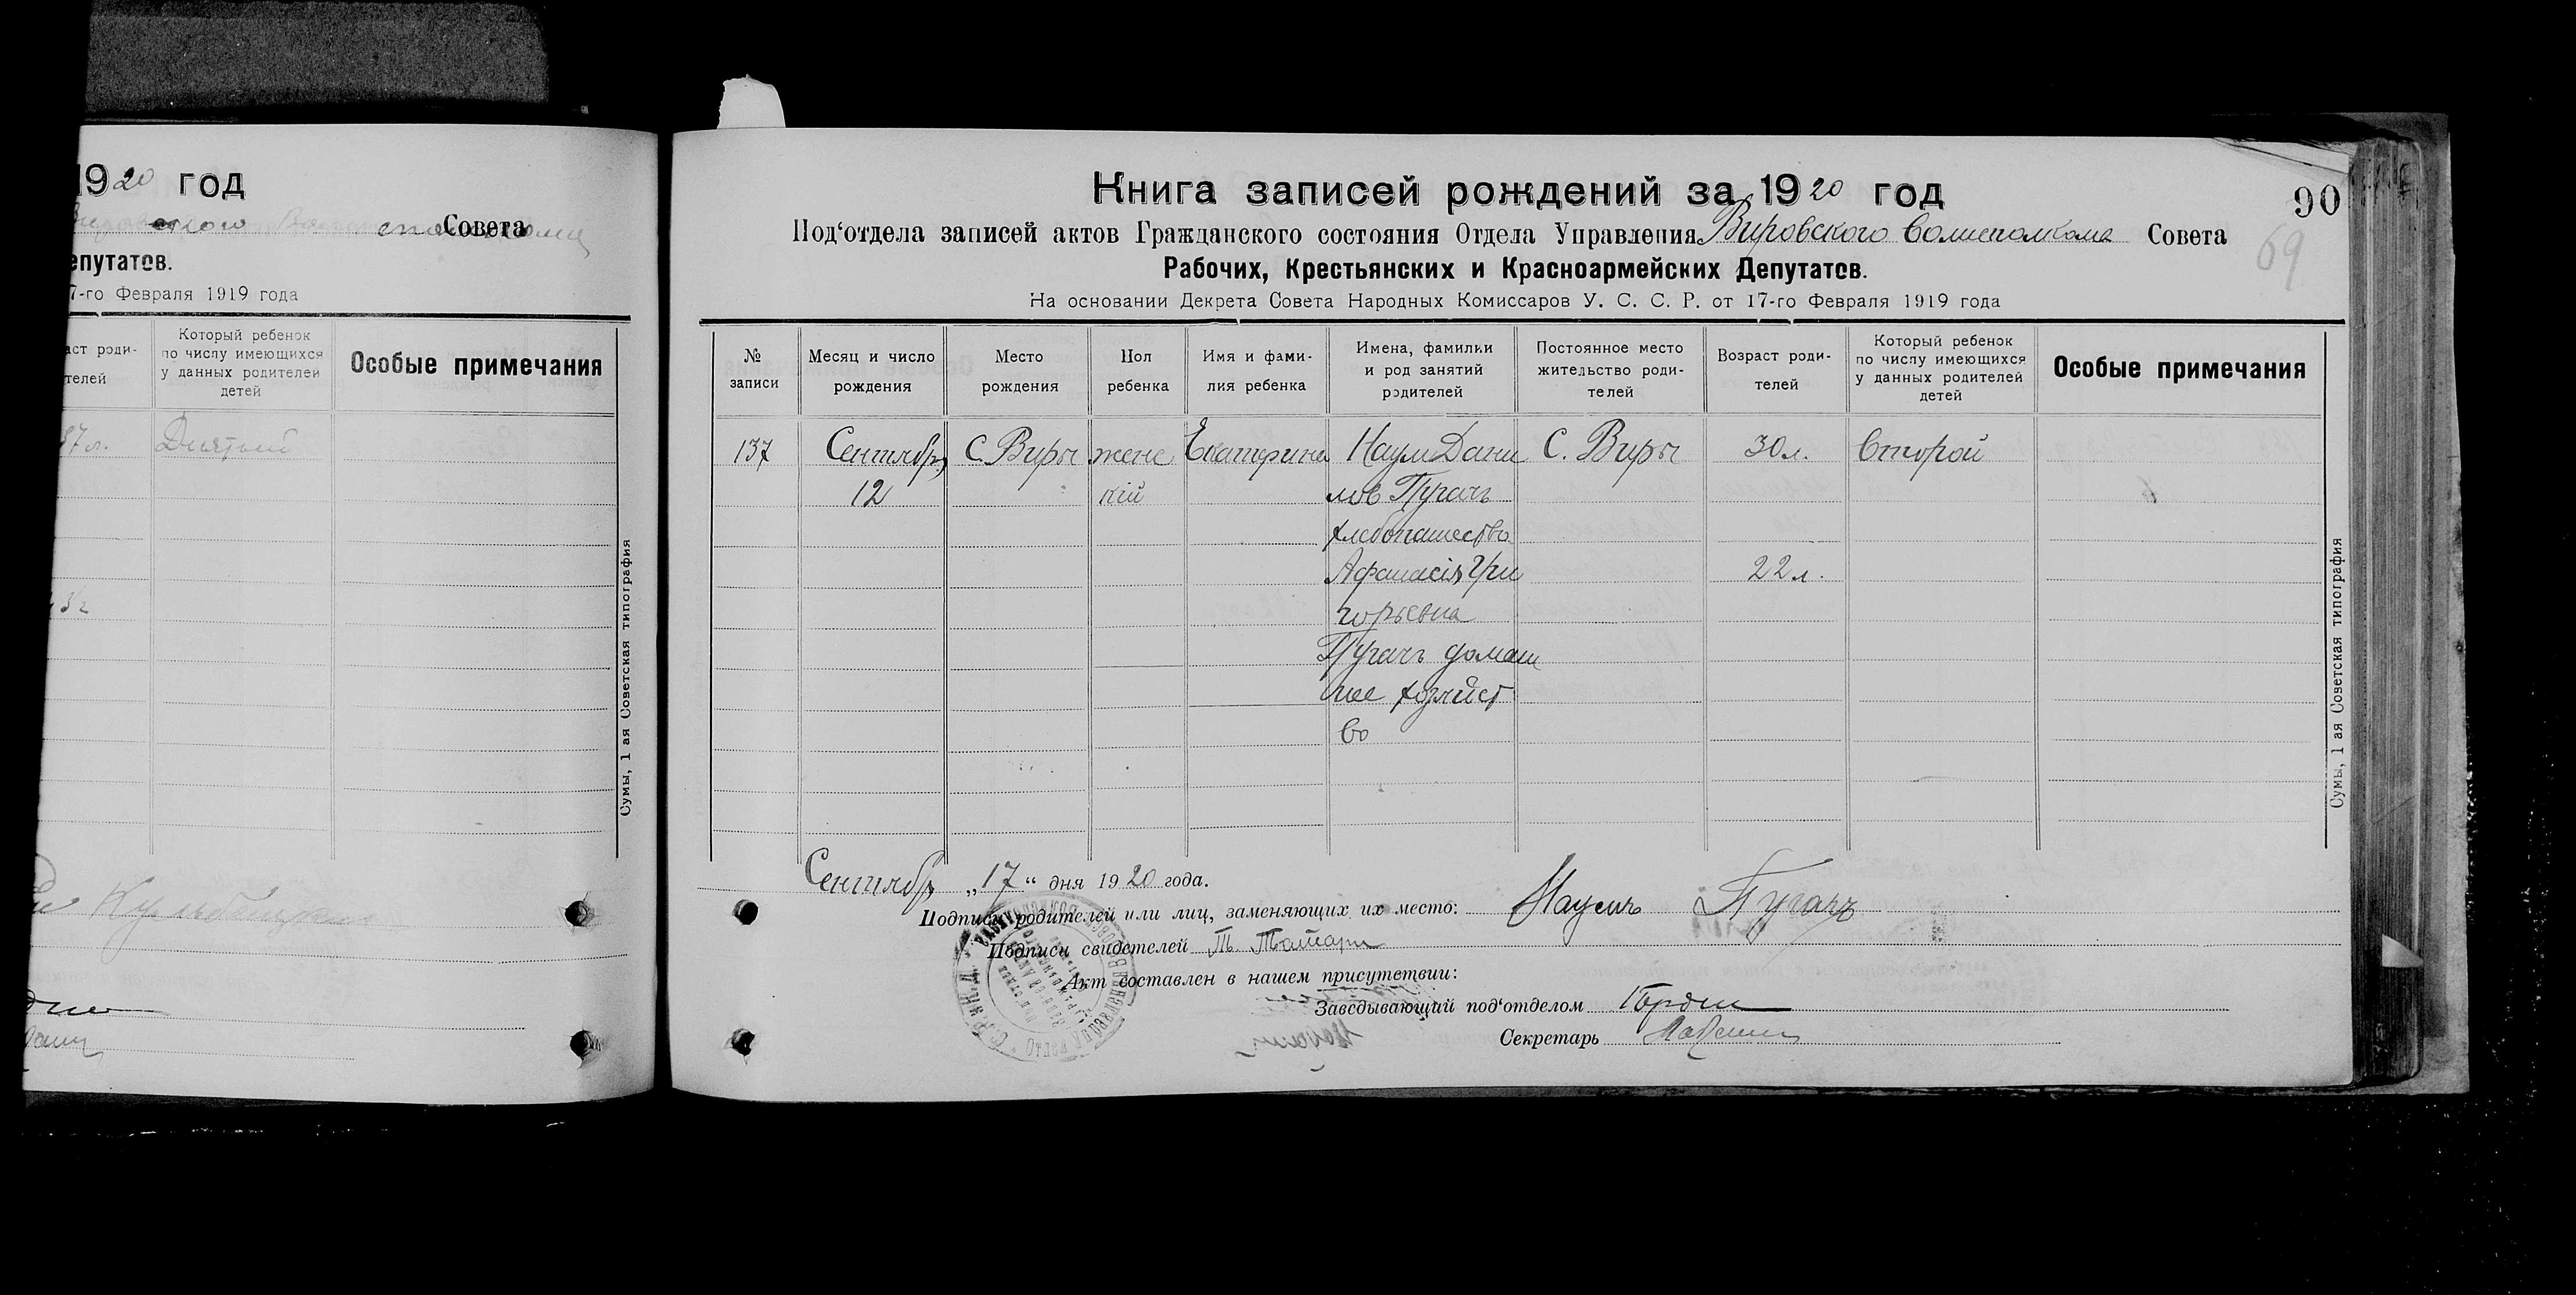 1920 год
Совета
епутатов.
7-го Февраля 1919 года
аст роди-
телей
Который ребенок
по числу имеющихся
у данных родителей
детей
Особые примечания
87 л.
Сумы, 1 ая Советская типография
Книга записей рождений за 1920 год
90
Под‘отдела записей актов Гражданского состояния Отдела Управления Вировского Волисполкома Совета
69
Рабочих, Крестьянских и Красноармейских Депутатов.
На основании Декрета Совета Народных Комиссаров У. С. С. Р. от 17-го Февраля 1919 года
№
записи
Месяц и число
рождения
Место
рождения
Пол
ребенка
Имя и фами-
лия ребенка
Имена, фамилии
и род занятий
родителей
Постоянное место
жительство роди-
телей
Возраст роди-
телей
Который ребенок
по числу имеющихся
у данных родителей
детей
Особые примечания
137 Сентябрь С. Виры женс Екатерина Наум Дани С. Виры 30 л. Второй
12 кій лов Пугачъ
хлебопашество
Афанасія Гри 22 л.
горьевна
Пугачъ домаш
нее хозяйст
во
Сентябрь „17“ дня 1920 года.
Подписи родителей или лиц, заменяющих их место: Наумъ Пугачъ
Подписи свидетелей
Акт составлен в нашем присутствии:
Заведывающий под‘отделом
Секретарь
Сумы, 1 ая Советская типография